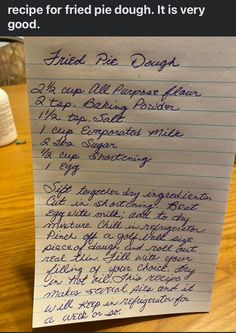 recipe for fried pie dough. It is very
good.
Fried Pie Dough
2½ cup All Purpose flour
2 tsp. Baking Powder
1½ tsp. Salt
1 cup Evaporated Milk
2 Tbs Sugar
½ cup Shortening
1 Egg
Sift together dry ingredients
Cut in shortening. Beat
egg with milk; add to dry
mixture. Chill in refrigerator.
Pinch off a golf ball size
piece of dough and roll out
real thin. Fill with your
filling of your choice. Fry
in Hot oil. This recipe
makes several pies and it
will keep in refrigerator for
a week or so.